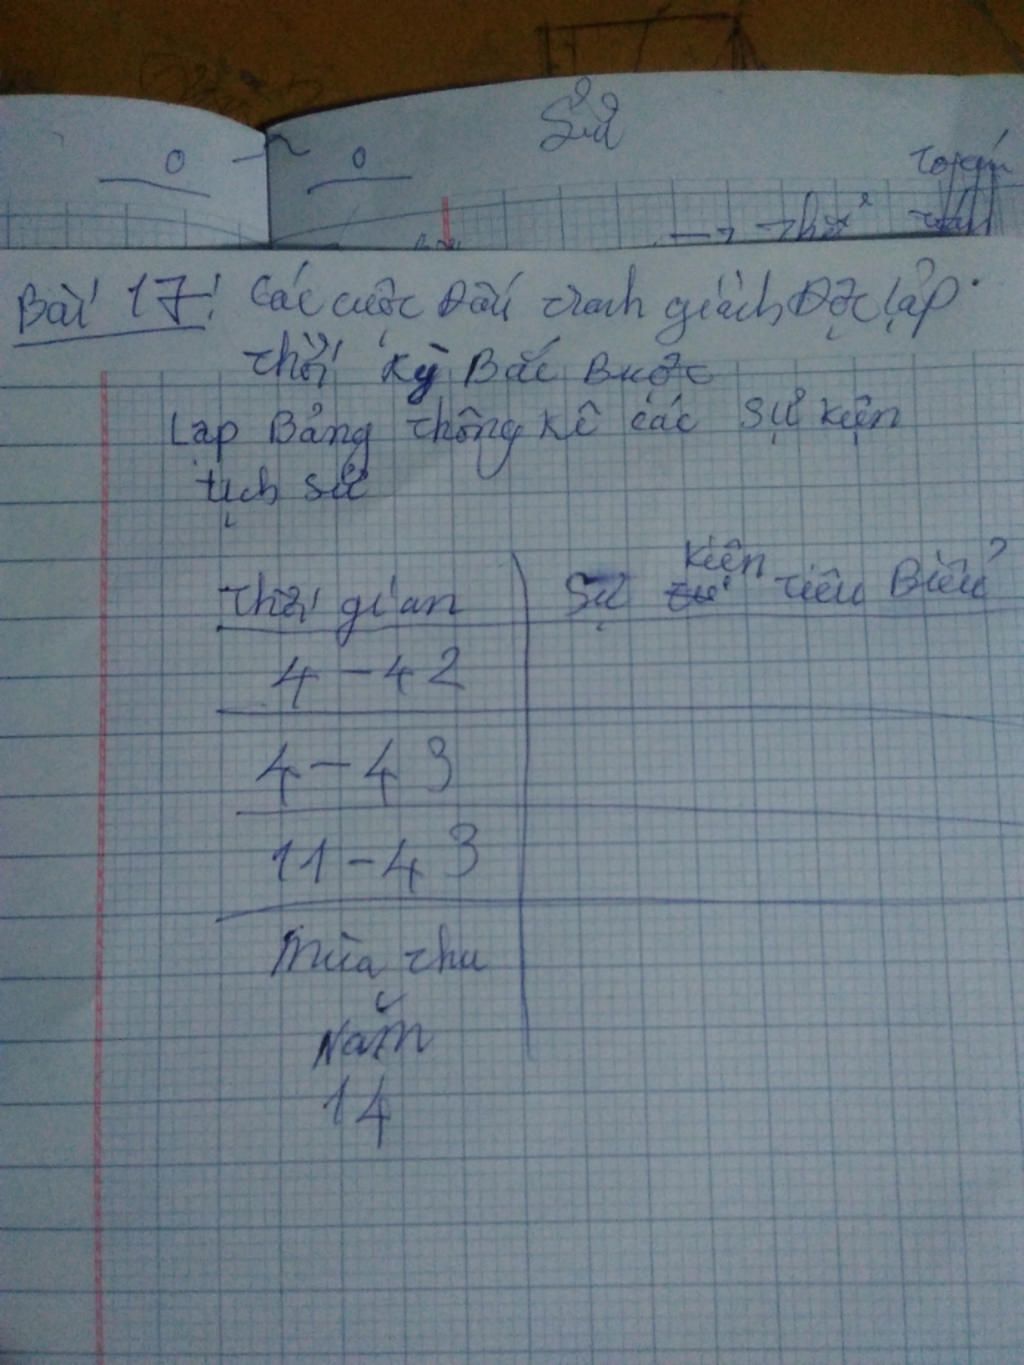 Sử
0
0
Thứ
Bài 17: Các cuộc Đấu tranh giành Độc lập
thời kỳ Bắc Buộc
Lập Bảng thống kê các sự kiện
lịch sử
Thời gian
Sự kiện tiêu Biểu
4-42
4-43
11-43
Mùa thu
Năm
14